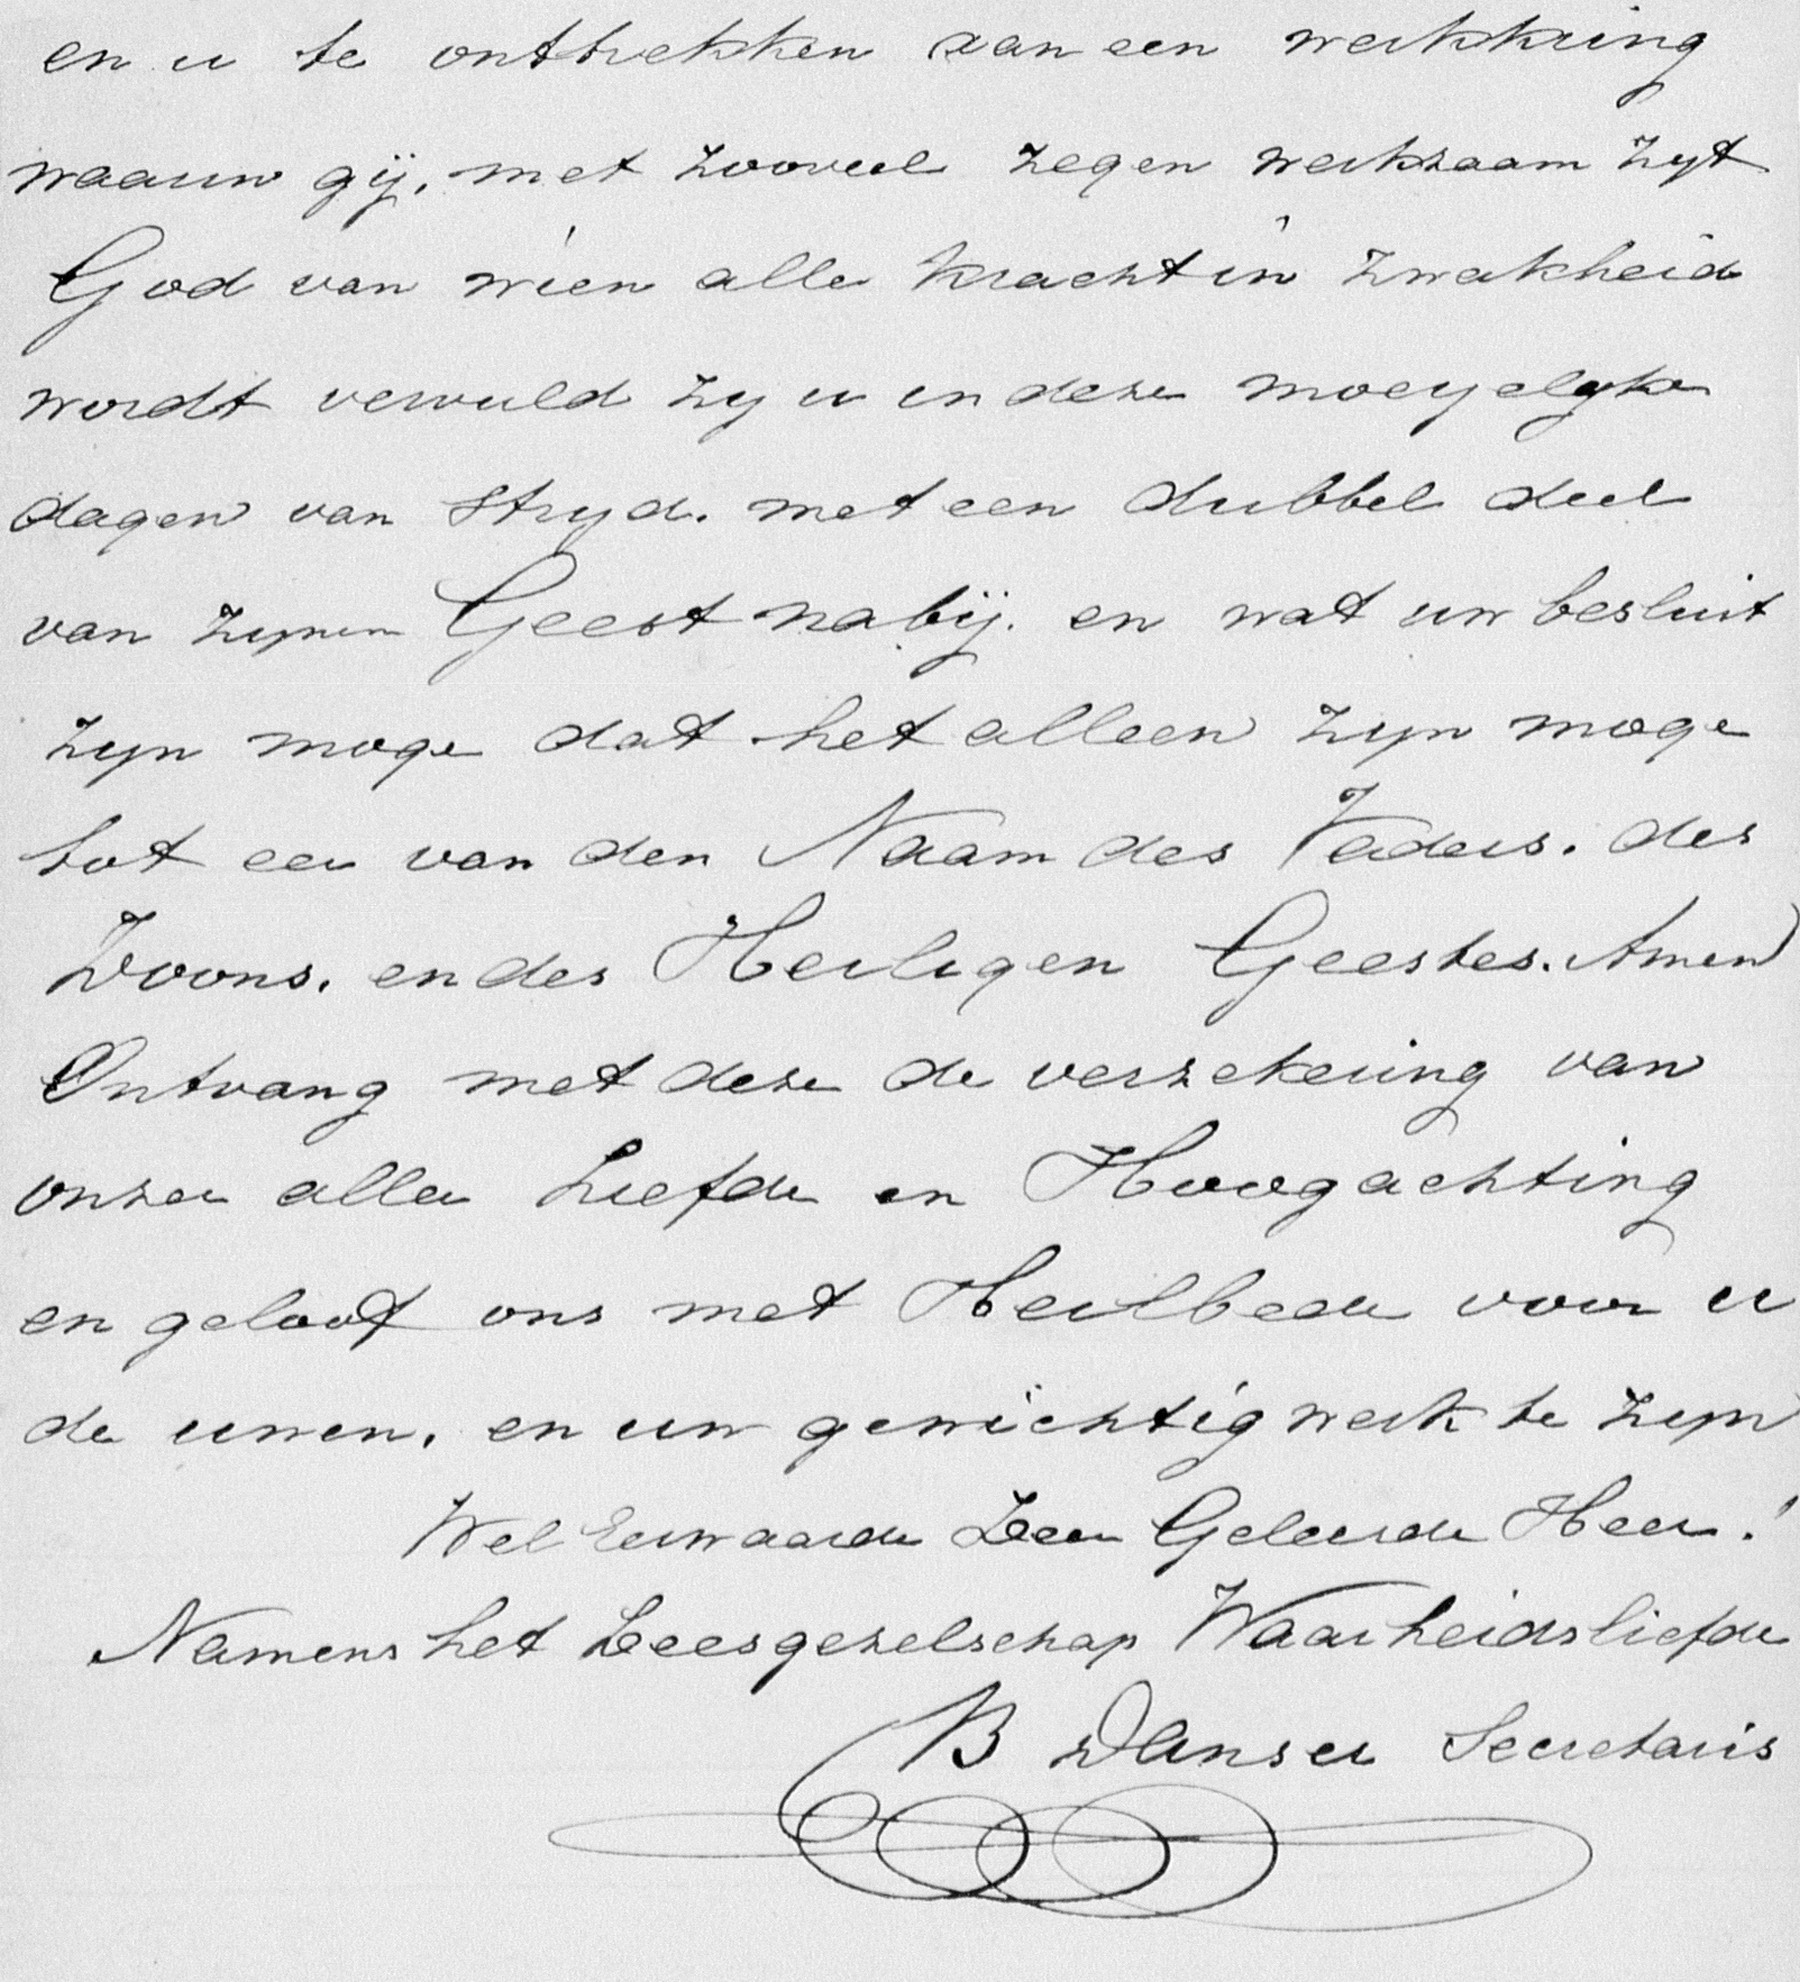 en u te onttrekken aan een werkkring
waarin gij, met zooveel zegen werkzaam zyt
God van wien alle kracht in zwakheid
wordt vervuld zy u in deze moeyelyke
dagen van Stryd. met een dubbel deel
van zynen Geest nabij. en wat uw besluit
zyn moge dat het alleen zyn moge
tot eer van den Naam des Vaders. des
Zoons. en des Heiligen Geestes. Amen
Ontvang met deze de verzekering van
onzer aller Liefde en Hoogachting
en geloof ons met Heilbede voor u
de uwen, en uw gewichtig werk te zyn
Wel Eerwaarde Zeer Geleerde Heer!
Namens het Leesgezelschap Waarheidsliefde
B Danser Secretaris